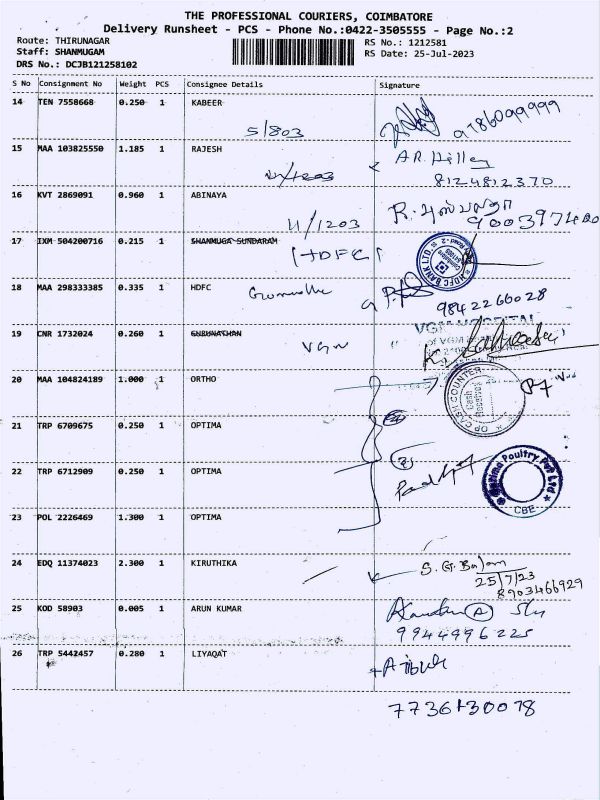 THE PROFESSIONAL COURIERS, COIMBATORE
Delivery Runsheet - PCS - Phone No.:0422-3505555 - Page No.:2
Route: THIRUNAGAR
RS No.: 1212581
Staff: SHANMUGAM
RS Date: 25-Jul-2023
DRS No.: DCJB121258102
S No Consignment No Weight PCS Consignee Details Signature
14 TEN 7558668 0.250 1 KABEER
5/803
9786099999
15 MAA 103825550 1.185 1 RAJESH
8124812370
16 KVT 2869091 0.960 1 ABINAYA
11/1203
17 IXM 504200716 0.215 1 SHANMUGA SUNDARAM
HDFC
HDFC BANK LTD.
18 MAA 298333385 0.335 1 HDFC
9842266028
19 CNR 1732024 0.260 1 GURUNATHAN
VGM
VGM HOSPITAL
20 MAA 104824189 1.000 1 ORTHO
OP CASH COUNTER
Cash Received
21 TRP 6709675 0.250 1 OPTIMA
22 TRP 6712909 0.250 1 OPTIMA
Optima Poultry Pvt Ltd
CBE
23 POL 2226469 1.300 1 OPTIMA
24 EDQ 11374023 2.300 1 KIRUTHIKA
S. G. Balam
25/7/23
8903466929
25 KOD 58903 0.005 1 ARUN KUMAR
9944996225
26 TRP 5442457 0.280 1 LIYAQAT